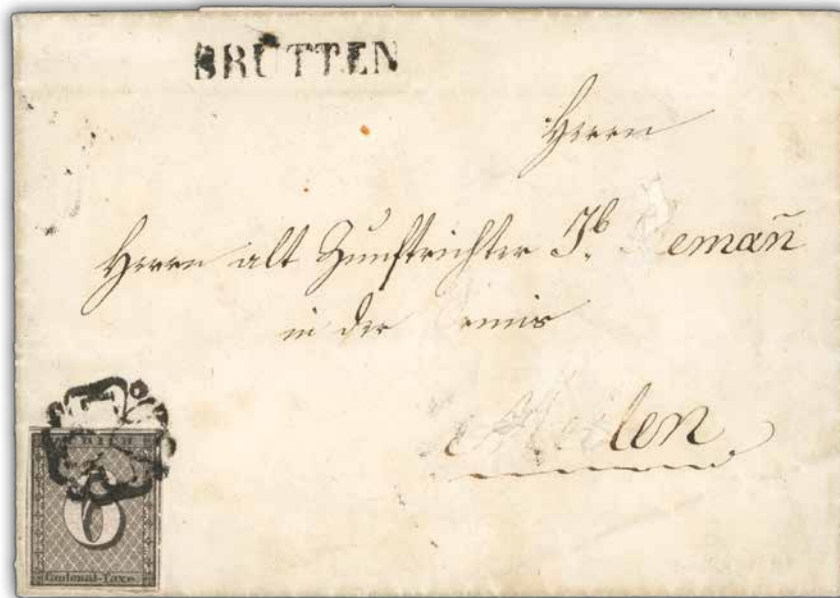 BRÜTTEN
Herrn
Herrn alt Zunftrichter Jb. Lemañ
in der
Meilen
ZÜRICH
6
Cantonal-Taxe.